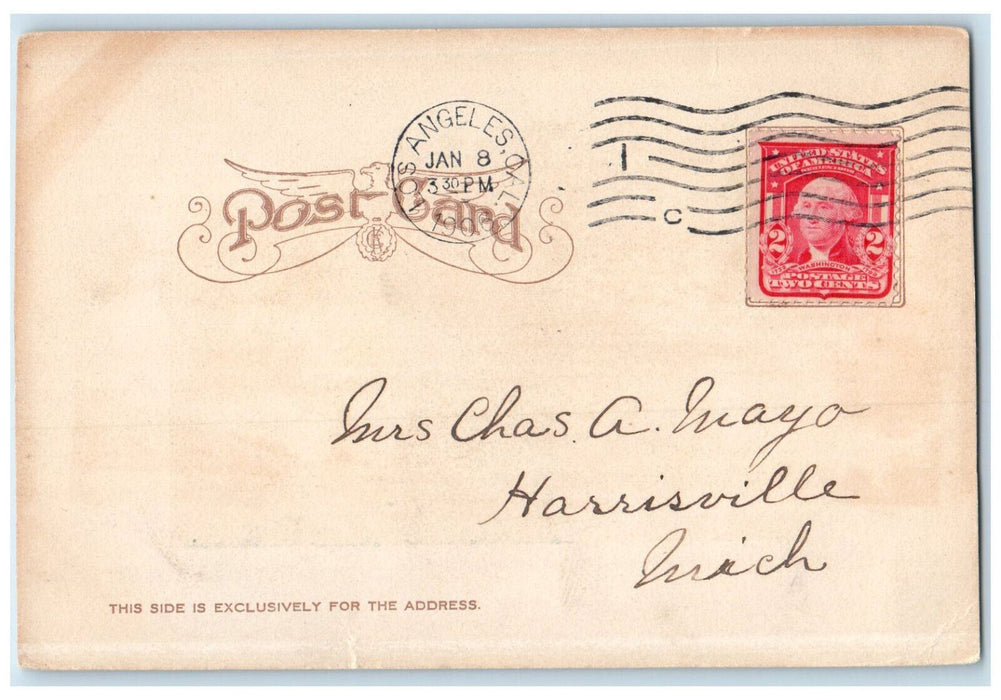 LOS ANGELES, CAL.
JAN 8
3 30 PM
1906
1
C
Post Card
UNITED STATES
OF AMERICA
2 2
WASHINGTON
POSTAGE
TWO CENTS
Mrs Chas. A. Mayo
Harrisville
Mich
THIS SIDE IS EXCLUSIVELY FOR THE ADDRESS.